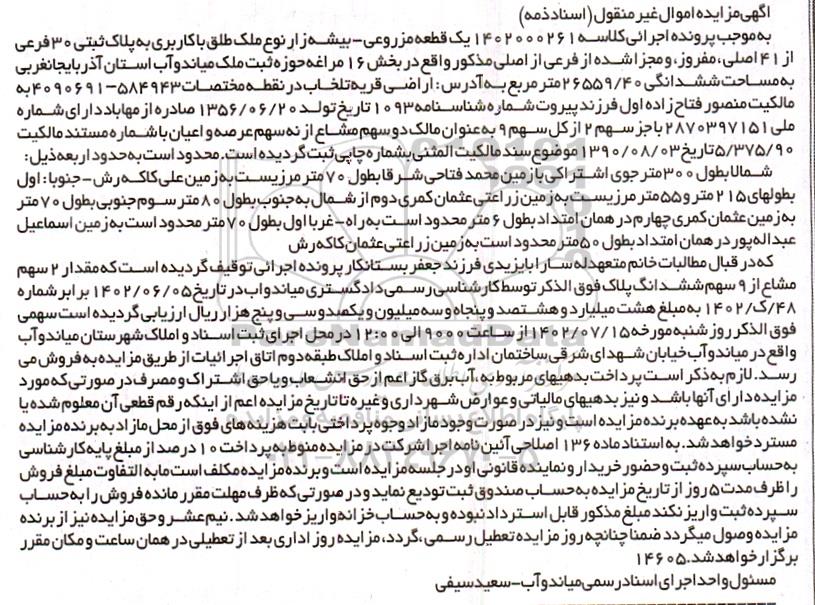 آگهی مزایده اموال غیر منقول (اسناد ذمه)
به موجب پرونده اجرائی کلاسه ۱۴۰۲۰۰۰۲۶۱ یک قطعه مزروعی-بیشه زار نوع ملک طلق با کاربری به پلاک ثبتی ۳۰ فرعی
از ۴۱ اصلی، مفروز و مجزا شده از فرعی از اصلی مذکور واقع در بخش ۱۶ مراغه حوزه ثبت ملک میاندوآب استان آذربایجانغربی
به مساحت ششدانگی ۲۶۵۵۹/۴۰ متر مربع به آدرس: اراضی قریه تلخاب در نقطه مختصات ۵۸۴۹۴۳-۴۰۹۰۶۹۱ به
مالکیت منصور فتاح زاده اول فرزند پیروت شماره شناسنامه ۱۰۹۳ تاریخ تولد ۱۳۵۶/۰۶/۲۰ صادره از مهاباد دارای شماره
ملی ۲۸۷۰۳۹۷۱۵۱ با جز سهم ۲ از کل سهم ۹ به عنوان مالک دو سهم مشاع از نه سهم عرصه و اعیان با شماره مستند مالکیت
۵/۳۷۵/۹۰ تاریخ ۱۳۹۰/۰۸/۰۳ موضوع سند مالکیت المثنی بشماره چاپی ثبت گردیده است. محدود است به حدود اربعه ذیل:
شمالا بطول ۳۰۰ متر جوی اشتراکی با زمین محمد فتاحی شرقا بطول ۷۰ متر مرزیست به زمین علی کاکه رش - جنوبا: اول
بطولهای ۲۱۵ متر و ۵۵ متر مرزیست به زمین زراعتی عثمان کمری دوم از شمال به جنوب بطول ۸۰ متر سوم جنوبی بطول ۷۰ متر
به زمین عثمان کمری چهارم در همان امتداد بطول ۶ متر محدود است به راه - غربا اول بطول ۷۰ متر محدود است به زمین اسماعیل
عبداله پور در همان امتداد بطول ۵۰ متر محدود است به زمین زراعتی عثمان کاکه رش
که در قبال مطالبات خانم متعهدله سارا بایزیدی فرزند جعفر بستانکار پرونده اجرائی توقیف گردیده است که مقدار ۲ سهم
مشاع از ۹ سهم ششدانگ پلاک فوق الذکر توسط کارشناسی رسمی دادگستری میاندواب در تاریخ ۱۴۰۲/۰۶/۰۵ برابر شماره
۴۸/ک/۱۴۰۲ به مبلغ هشت میلیارد و هشتصد و پنجاه و سه میلیون و یکصد و سی و پنج هزار ریال ارزیابی گردیده است سهمی
فوق الذکر روز شنبه مورخه ۱۴۰۲/۰۷/۱۵ از ساعت ۹۰۰۰ الی ۱۲:۰۰ در محل اجرای ثبت اسناد و املاک شهرستان میاندوآب
واقع در میاندوآب خیابان شهدای شرقی ساختمان اداره ثبت اسناد و املاک طبقه دوم اتاق اجرائیات از طریق مزایده به فروش می
رسد. لازم به ذکر است پرداخت بدهیهای مربوط به، آب برق گاز اعم از حق انشعاب و یا حق اشتراک و مصرف در صورتی که مورد
مزایده دارای آنها باشد و نیز بدهیهای مالیاتی و عوارض شهرداری و غیره تا تاریخ مزایده اعم از اینکه رقم قطعی آن معلوم شده یا
نشده باشد به عهده برنده مزایده است و نیز در صورت وجود مازاد وجوه پرداختی بابت هزینه های فوق از محل مازاد به برنده مزایده
مسترد خواهد شد. به استناد ماده ۱۳۶ اصلاحی آئین نامه اجرا شرکت در مزایده منوط به پرداخت ۱۰ درصد از مبلغ پایه کارشناسی
به حساب سپرده ثبت و حضور خریدار و نماینده قانونی او در جلسه مزایده است و برنده مزایده مکلف است مابه التفاوت مبلغ فروش
را ظرف مدت ۵ روز از تاریخ مزایده به حساب صندوق ثبت تودیع نماید و در صورتی که ظرف مهلت مقرر مانده فروش را به حساب
سپرده ثبت واریز نکند مبلغ مذکور قابل استرداد نبوده و به حساب خزانه واریز خواهد شد. نیم عشر و حق مزایده نیز از برنده
مزایده وصول میگردد ضمنا چنانچه روز مزایده تعطیل رسمی، گردد، مزایده روز اداری بعد از تعطیلی در همان ساعت و مکان مقرر
برگزار خواهد شد. ۱۴۶۰۵
مسئول واحد اجرای اسناد رسمی میاندوآب - سعید سیفی